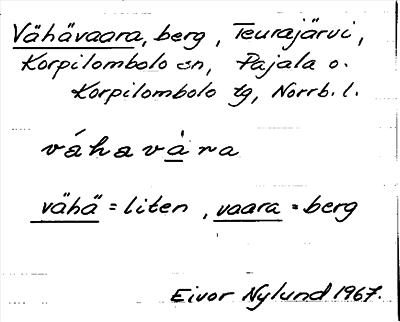 Vähävaara, berg, Teurajärvi,
Korpilombolo sn, Pajala o.
Korpilombolo tg, Norrb. l.
váhavàra
vähä = liten, vaara = berg
Eivor Nylund 1967.